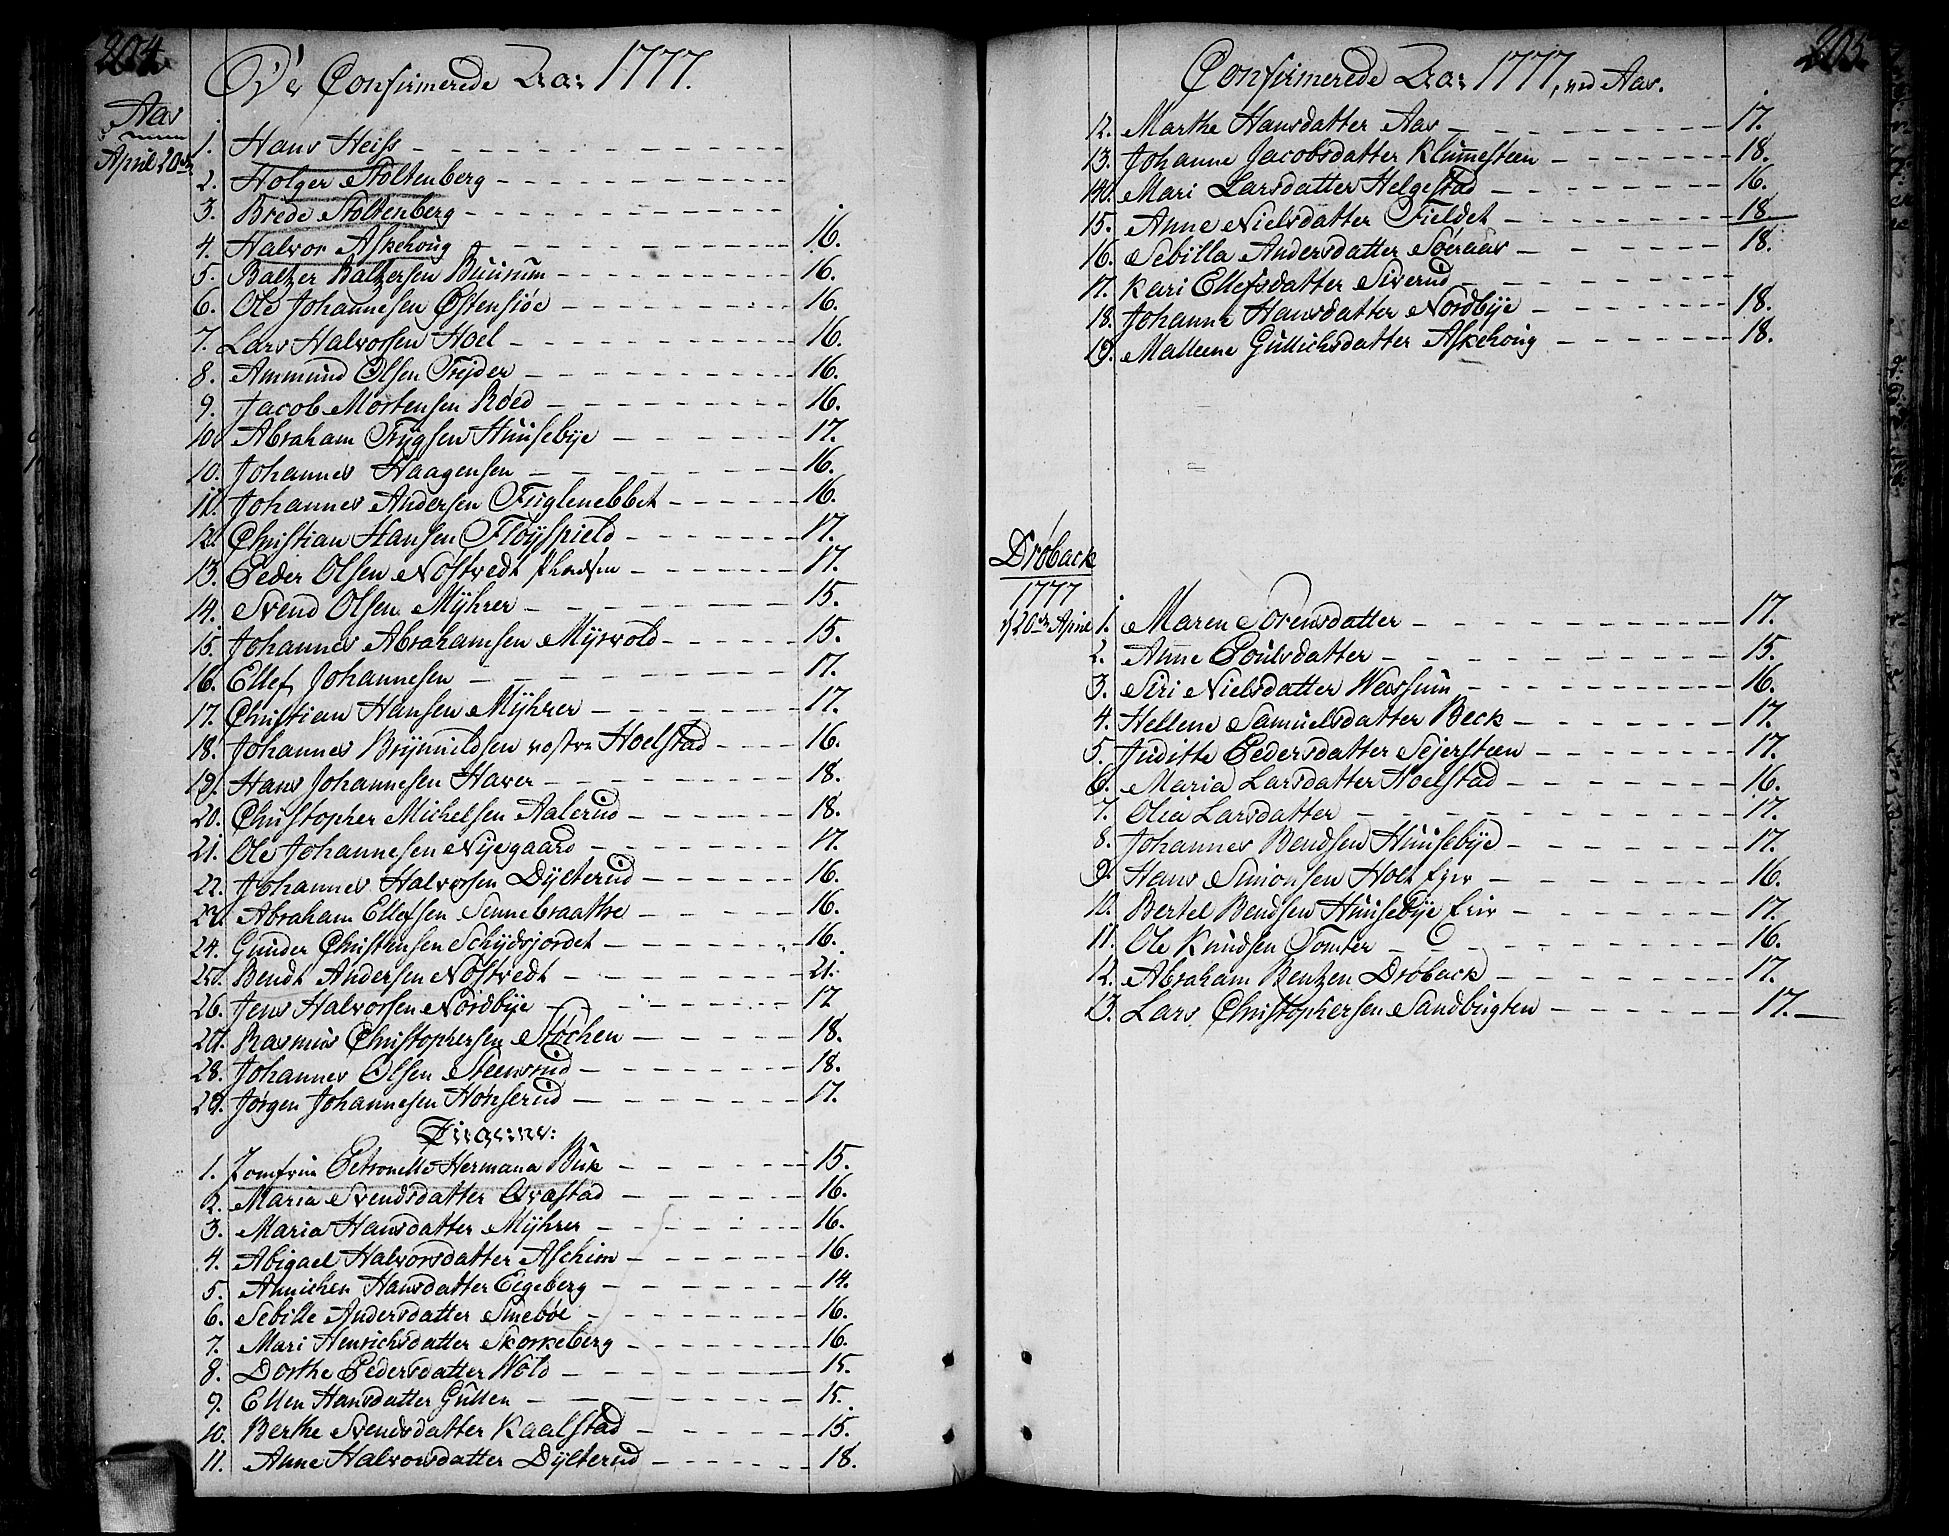 204.
De Confirmerede Ao: 1777.
Aas
April 20de
1. Hans Heiss
2. Holger Stoltenberg
3. Brede Stoltenberg
4. Halvor Askehoug 16.
5. Baltzer Baltzersen Buurum 16.
6. Ole Johannesen Østensiøe 16.
7. Lars Halvorsen Hoel 16.
8. Ammund Olsen Frejder 16.
9. Jacob Mortensen Røed 16.
10. Abraham Trygsen Huusebye 17.
10. Johannes Haagensen 16.
11. Johannes Andersen Fuglenebbet 16.
12. Christian Hansen Fløyspield 17.
13. Peder Olsen Nøstvedt 17.
14. Svend Olsen Myhrer 15.
15. Johannes Abrahamsen Myrvold 15.
16. Ellef Johannesen 17.
17. Christian Hansen Myhrer 17.
18. Johannes Brynnildsen Hoelstad 16.
19. Hans Johannesen Haver 18.
20. Christopher Michelsen Aalerud 18.
21. Ole Johannesen Nyegaard 17.
22. Johannes Halvorsen Dylterud 16.
23. Abraham Ellefsen Sennebraathe 16.
24. Gunder Christensen Schydsjordet 16.
25. Bendt Andersen Nøstvedt 21.
26. Jens Halvorsen Nordbye 17
27. Rasmus Christophersen Støchen 18.
28. Johannes Olsen Steensrud 18.
29. Jørgen Johannesen Hønserud 17.
Pigerne:
1. Jomfrue Petronelle Hermana Bük 15.
2. Maria Svendsdatter Qvæstad 16.
3. Maria Hansdatter Myhrer 16.
4. Abigael Halvorsdatter Aschim 16.
5. Annichen Hansdatter Eigeberg 14.
6. Sebille Andersdatter Smebøe 16.
7. Mari Henrichsdatter Skorkeberg 16.
8. Dorthe Pedersdatter Wold 15.
9. Ellen Hansdatter Gullen 15.
10. Berthe Svendsdatter Kaalstad 15.
11. Anne Halvorsdatter Dylterud 18.
205.
Confirmerede Ao: 1777, ved Aas.
12. Marthe Hansdatter Aas 17.
13. Johanne Jacobsdatter Klummesteen 18.
14. Mari Larsdatter Helgestad 16.
15. Anne Nielsdatter Fieldet 18
16. Sebilla Andersdatter Søeraas 18.
17. Kari Ellefsdatter Siverud
18. Johanne Hansdatter Nordbye 18.
19. Malleene Gullichsdatter Askehoug 18.
Drøback
1777
d 20de April
1. Maren Sørensdatter 17.
2. Anne Poulsdatter 15.
3. Siri Nielsdatter Wassum 16.
4. Hellene Samuelsdatter Beck 17.
5. Juditte Pedersdatter Sejersteen 17.
6. Maria Larsdatter Hoelstad 16.
7. Olia Larsdatter 17.
8. Johannes Bendsen Huusebye 17.
9. Hans Simonsen Holt 16.
10. Bertel Bendsen Huusebye 17.
11. Ole Knudsen Tomter 16.
12. Abraham Bentzen Drøback 17.
13. Lars Christophersen Sandbugten 17.